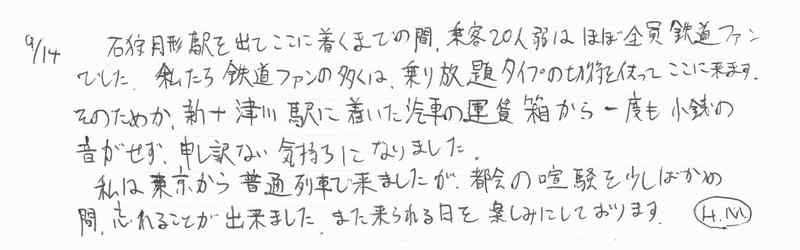 9/14 石狩月形駅を出てここに着くまでの間、乗客20人弱はほぼ全員鉄道ファン
でした。私たち鉄道ファンの多くは、乗り放題タイプの切符を使ってここに来ます。
そのためか、新十津川駅に着いた汽車の運賃箱から一度も小銭の
音がせず、申し訳ない気持ちになりました。
私は東京から普通列車で来ましたが、都会の喧騒を少しばかの
間、忘れることが出来ました。また来られる日を楽しみにしております。 H.M